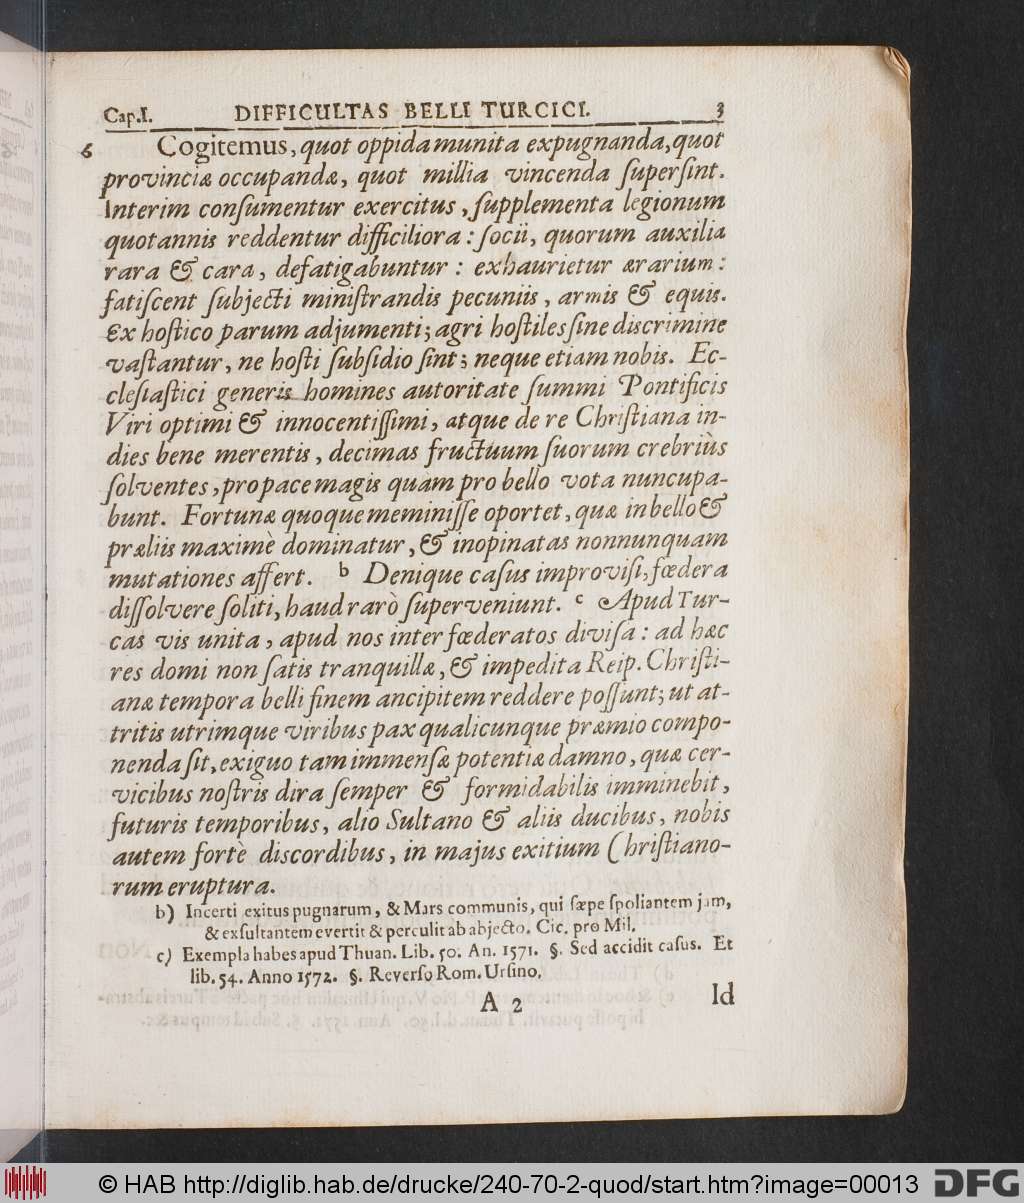 Cap.I. DIFFICULTAS BELLI TURCICI. 3
6 Cogitemus, quot oppida munita expugnanda, quot
provinciæ occupandæ, quot millia vincenda ſuperſint.
Interim conſumentur exercitus, ſupplementa legionum
quotannis reddentur difficiliora: ſocii, quorum auxilia
rara & cara, defatigabuntur: exhaurietur ærarium:
fatiſcent ſubjecti miniſtrandis pecuniis, armis & equis.
Ex hoſtico parum adjumenti; agri hoſtiles ſine discrimine
vaſtantur, ne hoſti ſubſidio ſint; neque etiam nobis. Ec-
cleſiaſtici generis homines autoritate ſummi Pontificis
Viri optimi & innocentiſſimi, atque de re Chriſtiana in-
dies bene merentis, decimas fructuum ſuorum crebriùs
ſolventes, pro pace magis quam pro bello vota nuncupa-
bunt. Fortunæ quoque meminiſſe oportet, quæ in bello &
præliis maximè dominatur, & inopinatas nonnunquam
mutationes affert. b Denique caſus improviſi, fœdera
diſſolvere ſoliti, haud rarò ſuperveniunt. c Apud Tur-
cas vis unita, apud nos inter fœderatos diviſa: ad hæc
res domi non ſatis tranquillæ, & impedita Reip. Chriſti-
anæ tempora belli finem ancipitem reddere poſſunt; ut at-
tritis utrimque viribus pax qualicunque præmio compo-
nenda ſit, exiguo tam immenſæ potentiæ damno, quæ cer-
vicibus noſtris dira ſemper & formidabilis imminebit,
futuris temporibus, alio Sultano & aliis ducibus, nobis
autem fortè discordibus, in majus exitium Chriſtiano-
rum eruptura.
b) Incerti exitus pugnarum, & Mars communis, qui ſæpe ſpoliantem jam,
& exſultantem evertit & perculit ab abjecto. Cic. pro Mil.
c) Exempla habes apud Thuan. Lib. 50. An. 1571. §. Sed accidit caſus. Et
lib. 54. Anno 1572. §. Reverſo Rom. Urſino.
A 2 Id
© HAB http://diglib.hab.de/drucke/240-70-2-quod/start.htm?image=00013 DFG